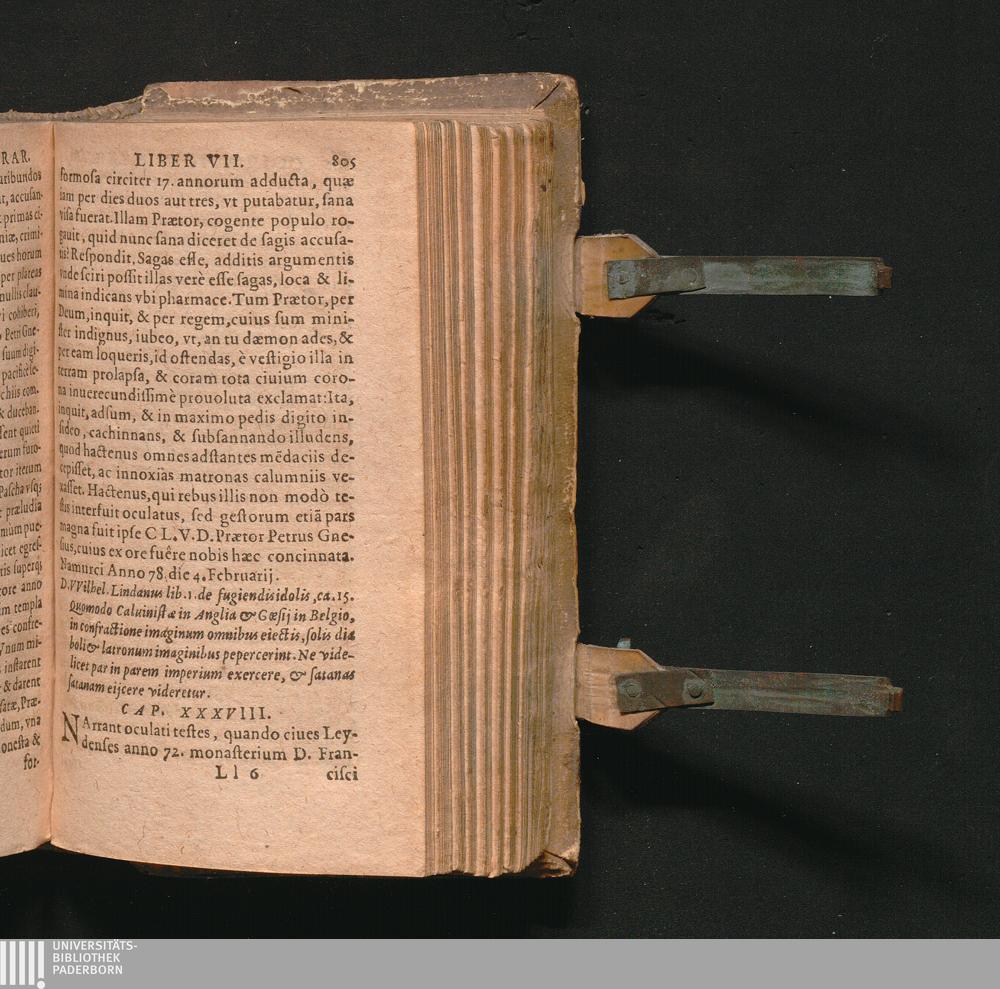 RAR.
utibundos
t, accusan-
t primas ci-
niæ, crimi-
ues horum
per plateas
nullis clau-
i cohiberi,
Petri Gne-
suum digi-
pacificè le-
chiis com.
& duceban.
sent quieti
erum furo-
tor iterum
Pascha vsq;
præludia
nium pue-
icet egres-
tis superq;
ore anno
im templa
es confre-
Vnum mi-
instarent
& darent
satæ, Præ-
dum, vna
onesta &
for-
LIBER VII. 805
formosa circiter 17. annorum adducta, quæ
iam per dies duos aut tres, vt putabatur, sana
visa fuerat. Illam Prætor, cogente populo ro-
gauit, quid nunc sana diceret de sagis accusa-
tis? Respondit, Sagas esse, additis argumentis
vnde sciri possit illas verè esse sagas, loca & li-
mina indicans vbi pharmace. Tum Prætor, per
Deum, inquit, & per regem, cuius sum mini-
ster indignus, iubeo, vt, an tu dæmon ades, &
per eam loqueris, id ostendas, è vestigio illa in
terram prolapsa, & coram tota ciuium coro-
na inuerecundissimè prouoluta exclamat: Ita,
inquit, adsum, & in maximo pedis digito in-
sideo, cachinnans, & subsannando illudens,
quod hactenus omnes adstantes mēdaciis de-
cepisset, ac innoxias matronas calumniis ve-
xasset. Hactenus, qui rebus illis non modò te-
stis interfuit oculatus, sed gestorum etiā pars
magna fuit ipse CL. V. D. Prætor Petrus Gne-
sius, cuius ex ore fuêre nobis hæc concinnata.
Namurci Anno 78. die 4. Februarij.
D. VVilhel. Lindanus lib. 1. de fugiendis idolis, ca. 15.
Quomodo Caluinistæ in Anglia & Gœsij in Belgio,
in confractione imaginum omnibus eiectis, solis dia
boli & latronum imaginibus pepercerint. Ne vide-
licet par in parem imperium exercere, & satanas
satanam eijcere videretur.
CAP. XXXVIII.
NArrant oculati testes, quando ciues Ley-
denses anno 72. monasterium D. Fran-
Ll 6 cisci
UNIVERSITÄTS-
BIBLIOTHEK
PADERBORN